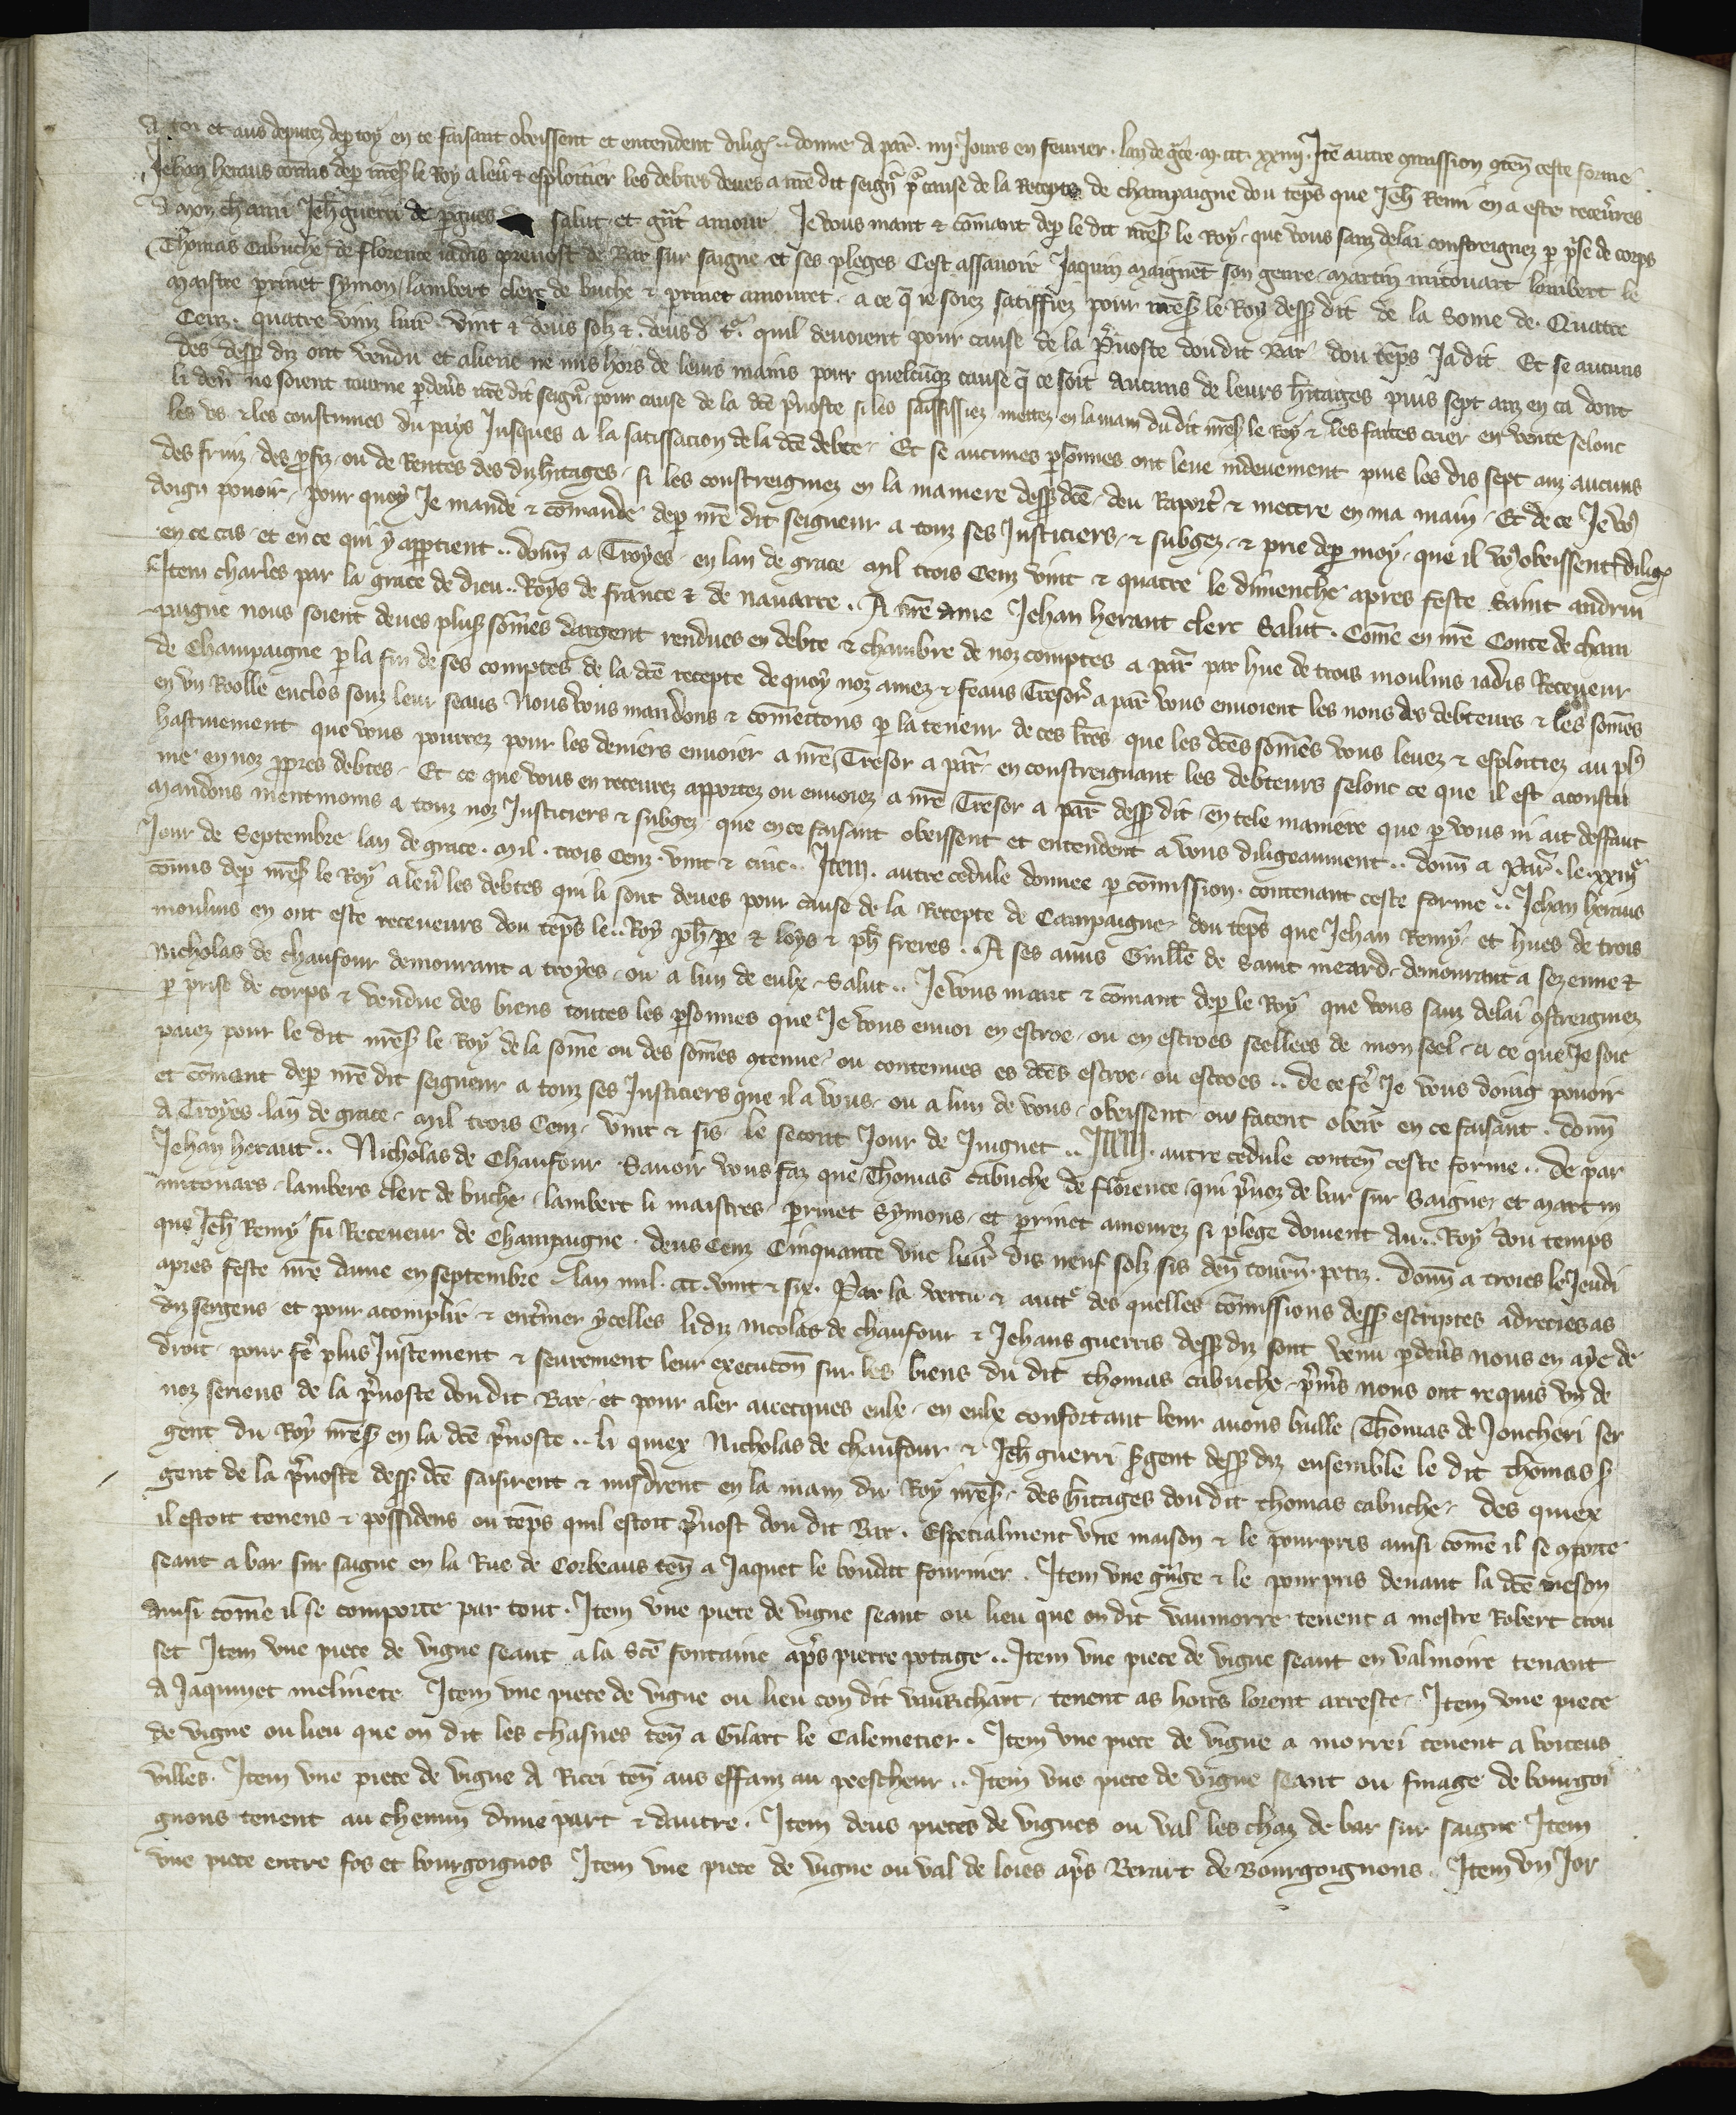 a toi et aus deputez de p toy en ce faisant obeissent et entendent dilig̃ .. donne a par̃ . iiij. Jours en feurier . lan de gc̃e . m . ccc . xxiiij . Itẽ autre 9mission 9ten̄ ceste forme
Jehan heraus cōmis de p nr̃es̃ le Roy a leũ & esploitier les debtes deues a nr̃e dit seign̄r pr̃ cause de la Recepte de champaigne dou tēps que Jeh̄ Remi en a este receũres
a mon ch̄ ami Jeh̄ guerri de pgnes salut et gñt amour Je vous mant & cōmant de p le dit nr̃es̃ le Roy . que vous sanz delai constreignez p pr̃se de corps
Thomas Cabuche de florence iadis preuost de Bar sur saigne et ses pleges Cest assauoir Jaquin maignet son genre . martin mitouart lambert le
maistre perinet symon / lambert clerc de buche & perinet amouret . a ce q̃ ie soiez satiffiez pour nr̃es̃ le Roy dess̃ dit de la some de . Quatre
Cenz . quatre vinz liur̃ . vint & deus solz & . deus d̃ t̃. quil deuoient pour cause de la p̃uoste dou dit Bar dou tēps Ja dit . Et se aucuns
des dess̃ diz ont vendu et aliene ne mis hors de leurs mains pour quelcūq̃ cause q̃ ce soit aucuns de leurs h̃itages puis sept anz en ca dont
li den̄ ne soient tourne p deũs nr̃e dit seign̄r . pour cause de la dc̃e p̃uoste si les saississiez mettez en la main du dit nr̃es̃ le Roy & les faites crier en vente selonc
les vs & les coustumes du pays Jusques a la satissacion de la dc̃e debte . Et se aucunes psonnes ont leue indeuement puis les dis sept anz aucuns
des fruiz . des pfiz . ou de Rentes des diz h̃itages . si les constreigniez en la maniere dess̃ dc̃e . deu Raport̃ & mettre en ma main . Et de ce Je vo9
doign pouoir . pour quoy Je mande & cōmande de p nr̃e dit seigneur a touz ses Justiciers . & subgez . & prie de p moy . que il vo9 obeissent dilig̃
en ce cas . et en ce qui y apptient .. donn̄ a Troyes . en lan de grace mil trois Cenz vint & quatre le dimenche apres feste Saint andriu
Item charles par la grace de dieu .. Roys de france & de nauarre . A nr̃e ame Jehan heraut clerc Salut . Cōme en nr̃e Conte de cham
paigne nous soient deues plus̃s sōmes dargent rendues en debte & chambre de noz comptes a par̃ par hue de trois moulins iadis Receueur
de Champaigne p la fin de ses comptes de la dc̃e recepte de quoy noz amez & feaus Tresor̃ a par̃ vous enuoient les nons des debteurs & les sōmes
en vn Roolle enclos souz leur seaus Nous vous mandons & cōmettons p la teneur de ces lr̃es que les dc̃es sōmes vous leuez & esploitiez au pl9
hastiuement que vous pourrez pour les deniers enuoier a nr̃e Tresor a par̃ . en constreignant les debteurs selonc ce que il est acoustu
me en noz ppres debtes . Et ce que vous en receurez apportez ou enuoiez a nr̃e Tresor a par̃ dess̃ dit . en tele maniere que p vous ni ait deffaut
mandons mentmoins a touz noz Justiciers & subgez que en ce faisant obeissent et entendent a vous diligeaument .. donn̄ a par̃ . le . xxiiij̃
Jour de Septembre lan de grace . mil . trois Cenz . vint & cinc .. Item . autre cedule donnee p cōmission . contenant ceste forme .. Jehan heraus
cōmis de p nr̃es̃ le Roy a leũ les debtes qui li sont deues pour cause de la Recepte de Campaigne . dou tēps que Jehan Remy . et hues de trois
moulins en ont este receueurs dou tēps le .. Roy ph̄ pe & loys & ph̄ freres .. A ses amis Guille de Saint meard . demourant a sezenne &
Nicholas de chaufour demourant a troyes . ou a lun de eulx . Salut .. Je vous mant & cōmant de p le Roy que vous sanz delai 9streigniez
p prise de corps & vendue des biens toutes les psonnes que Je vous enuoi en escroe . ou en escroes seellees de mon seel . a ce que Je soie
paiez pour le dit nr̃es̃ le Roy de la sōme ou des sōmes 9tenue . ou contenues es dc̃es escroe . ou escroes .. de ce fẽ Je vous doing pouoir
et cōmant de p nr̃e dit seigneur a touz ses Justiciers que il a vous . ou a lun de vous . obeissent . ou facent obeir en ce faisant . donn̄
a Troyes . lan de grace . mil trois Cenz . vint & sis . le secont Jour de Juignet .. Item . autre cedule conten̄ ceste forme .. de par
Jehan heraut .. Nicholas de Chaufour Sauoir vous faz que Thomas Cabuche de florence . qui p̃uoz de bar sur Saigne . et martin
mitouars . lambers clerc de buche . lambert li maistres . perinet Symons . et perinet amourez si plege doiuent au .. Roy dou temps
que Jeh̄ Remy fu Receueur de Champaigne . deus Cenz Cinquante vne liur̃ dis neuf solz sis den̄ tourn̄ . petiz . donn̄ a troies le Jeudi
apres feste nr̃e dame en septembre . lan mil . ccc . vint & six . Par la vertu & auct̃e des quelles cōmissions dess̃ escriptes adrecies as
diz sergens et pour acomplir & enteriner ycelles li diz nicolas de chaufour & Jehans guerris dess̃ diz sont venu p deũs nous en aye de
droit . pour fẽ plus Justement & seurement leur executon̄ sur les biens du dit thomas cabuche . p̃m̃s nous ont requis vn de
noz seriens de la p̃uoste dou dit Bar . et pour aler auecques eulx . en eulx confortant leur auons baille Thomas de Joncheri ser
gent du Roy nr̃es̃ en la dc̃e p̃uoste .. li quiex Nicholas de chaufour & Jeh̄ guerri s̃gent dess̃ diz ensemble le dit thomas s̃
gent de la p̃uoste dess̃ dc̃e saisirent & misdrent en la main du Roy nr̃es̃ . des h̃itages dou dit thomas cabuche . des quiex
il estoit tenens & possidens ou tēps quil estoit p̃uost dou dit Bar . Especialment vne maison & le pourpris ainsi cōme il se 9porte
seant a bar sur saigne en la Rue de Corbeaus ten̄ a Jaquet le boudat fournier . Item vne gr̃nge & le pourpris deuant la dc̃e meson
ainsi cōme il se comporte par tout . Item vne piece de vigne seant ou lieu que on dit vaumorre tenent a mestre Robert crou
set Item vne piece de vigne seant a la sc̃e fontaine ap̃s pierre potage .. Item vne piece de vigne seant en valmoire tenant
a Jaquinet meliuete Item vne piece de vigne ou lieu con dit vaurichart . tenent as hoirs lorent arreste . Item vne piece
de vigne ou lieu que on dit les chasnes ten̄ a Gilart le Calemetier . Item vne piece de vigne a morrei tenent a boiteus
villes . Item vne piece de vigne a Ricei ten̄ aus effanz au peescheur .. Item vne piece de vigne seant ou finage de bourgoi
gnons tenent au chemin dune part & dautre . Item deus pieces de vignes ou val les chaz de bar sur saigne Item
vne piece entre fos et bourgoignos Item vne piece de vigne ou val de loies ap̃s Berart de Bourgoignons . Item vn Jor